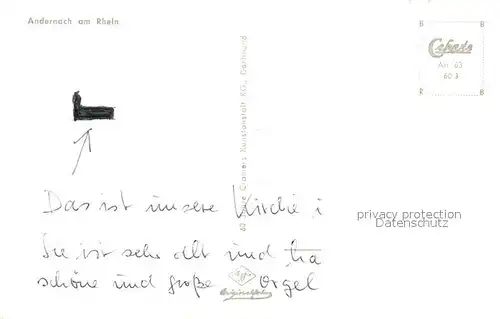 Andernach am Rhein
B B
Cekade
An 63
60 3
R B
Cramers Kunstanstalt KG., Dortmund
Das ist unsere Kirche i
privacy protection
Datenschutz
Sie ist sehr alt und
schöne und große Orgel
Originalfoto